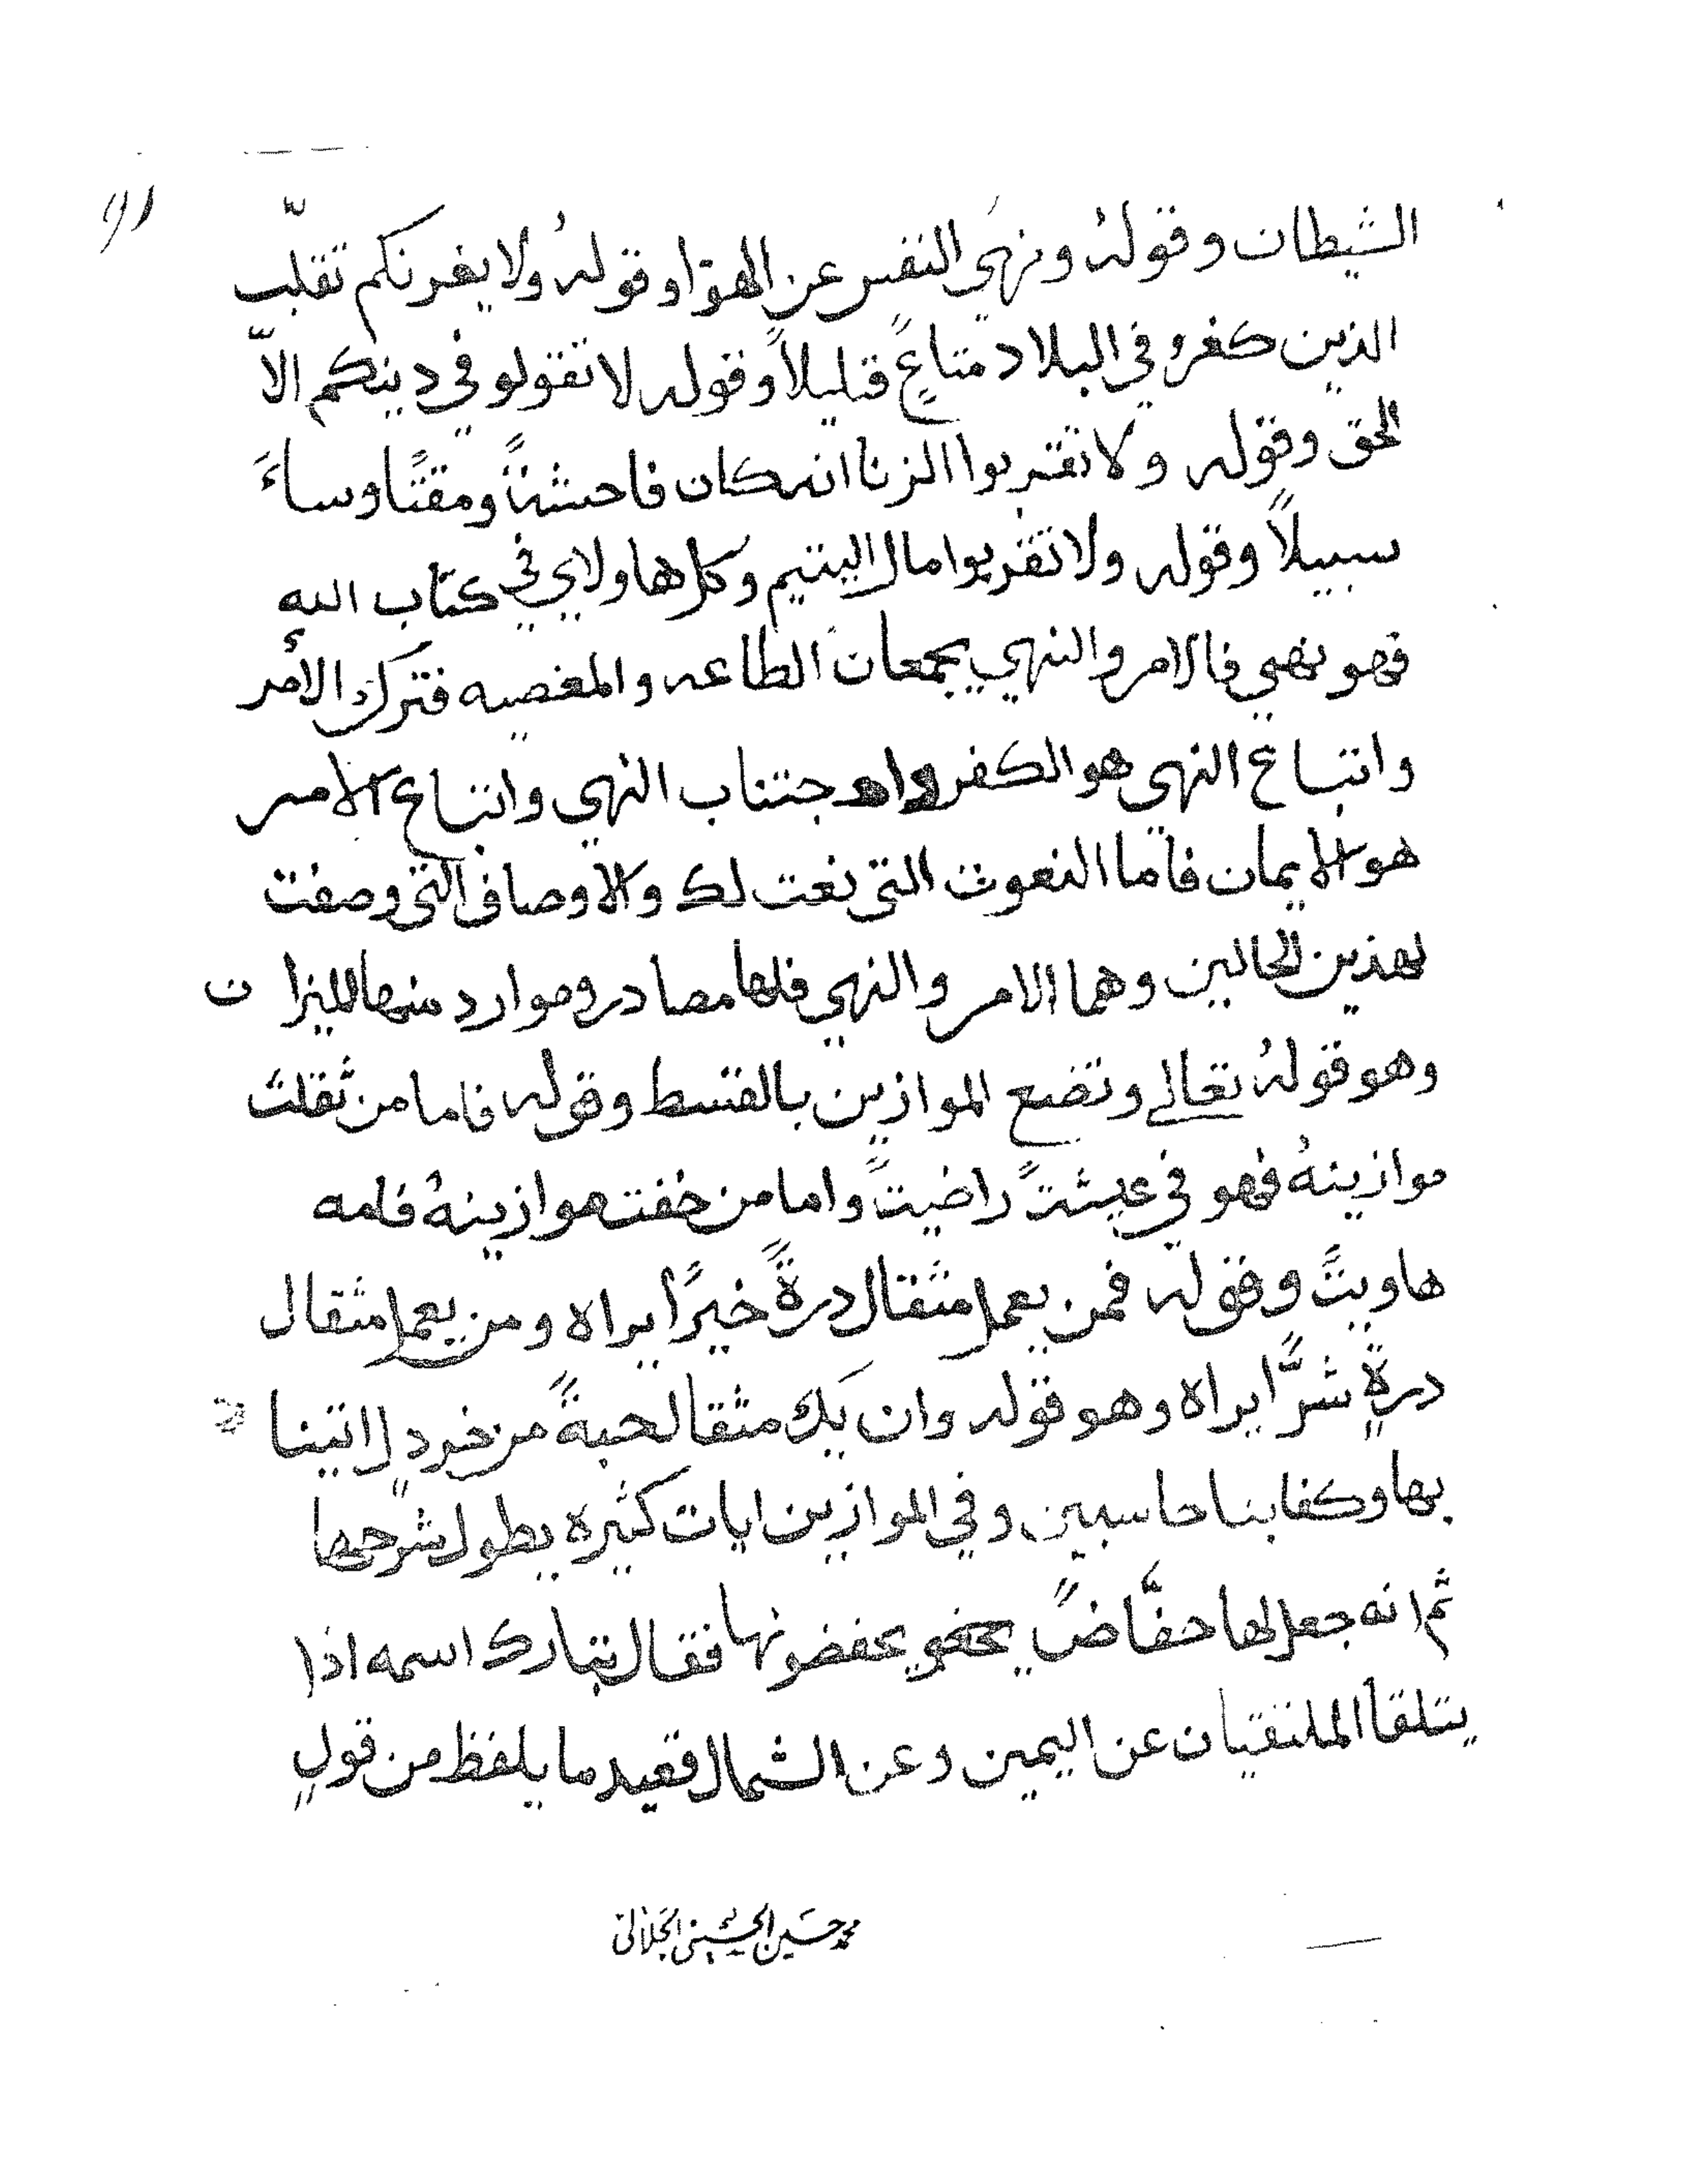 ٩١
الشيطان وقولهُ ونهي النفس عن الهوّا وقولهُ ولا يغرنكم تقلّب
الذين كفرو في البلاد متاعٍ قليلاً وقوله لا تقولو في دينكم الاّ
الحق وقوله ولا تقتربوا الزنا انه كان فاحشةً ومقتًا وساءَ
سبيلاً وقوله ولا تقربوا مال اليتيم وكل هاولاي في كتاب الله
فهو نهي فالامر والنهي يجمعان الطاعه والمعصيه فترك الأمر
واتباع النهي هو الكفر واجتناب النهي واتباع الامر
هو الايمان فاما النعوت التي نعت لك والاوصاف التي وصفت
لهذين الحالين وهما الامر والنهي فلها مصادر وموارد منها الميزان
وهو قولهُ تعالي ونضع الموازين بالقسط وقوله فاما من ثقلت
موازينهُ فهو في عيشتً راضيتً واما من خفت موازينهُ فامه
هاويتً وقوله فمن يعمل مثقال درةً خيرًا يراه ومن يعمل مثقال
درةٍ شرًّا يراه وهو قوله وان يَك مثقال حبةً من خردلٍ اتينا
بها وكفا بنا حاسبين وفي الموازين ايات كثيره يطول شرحها
ثم انه جعل لها حفّاضً يحفضونها فقال تبارك اسمه اذا
يتلقا الملتقيان عن اليمين وعن الشمال قعيد ما يلفظ من قولٍ
محمد حسين الحسيني الجلالي